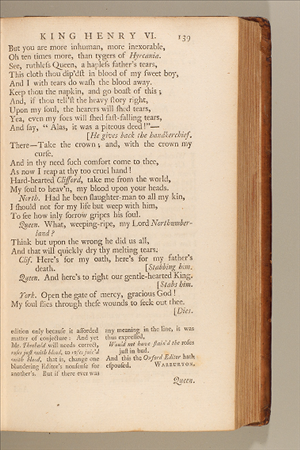 KING HENRY VI. 139
But you are more inhuman, more inexorable,
Oh ten times more, than tygers of Hyrcania.
See, ruthless Queen, a hapless father's tears,
This cloth thou dip'dst in blood of my sweet boy,
And I with tears do wash the blood away.
Keep thou the napkin, and go boast of this;
And, if thou tell'st the heavy story right,
Upon my soul, the hearers will shed tears,
Yea, even my foes will shed fast-falling tears,
And say, "Alas, it was a piteous deed!"—
[He gives back the handkerchief.
There—Take the crown; and, with the crown my
curse.
And in thy need such comfort come to thee,
As now I reap at thy too cruel hand!
Hard-hearted Clifford, take me from the world,
My soul to heav'n, my blood upon your heads.
North. Had he been slaughter-man to all my kin,
I should not for my life but weep with him,
To see how inly sorrow gripes his soul.
Queen. What, weeping-ripe, my Lord Northumber-
land?
Think but upon the wrong he did us all,
And that will quickly dry thy melting tears.
Clif. Here's for my oath, here's for my father's
death. [Stabbing him.
Queen. And here's to right our gentle-hearted King.
[Stabs him.
York. Open the gate of mercy, gracious God!
My soul flies through these wounds to seek out thee.
[Dies.
edition only because it afforded
matter of conjecture: And yet
Mr. Theobald will needs correct,
roses just with blood, to roses juic'd
with blood, that is, change one
blundering Editor's nonsense for
another's. But if there ever was
any meaning in the line, it was
thus expressed,
Would not have stain'd the roses
just in bud.
And this the Oxford Editor hath
espoused. WARBURTON.
Queen.